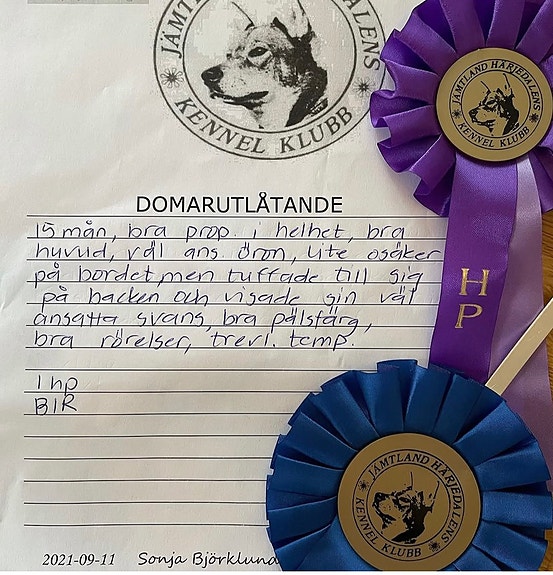 JÄMTLAND HÄRJEDALENS
KENNEL KLUBB
JÄMTLAND HÄRJEDALENS
KENNEL KLUBB
DOMARUTLÅTANDE
15 mån, bra prop. i helhet, bra
huvud, väl ans. öron, lite osäker
på bordet, men tuffade till sig
på backen och visade sin väl
ansatta svans, bra pälsfärg,
bra rörelser, trevl. temp.
HP
1 hp
BIR
JÄMTLAND HÄRJEDALENS
KENNEL KLUBB
2021-09-11 Sonja Björklund